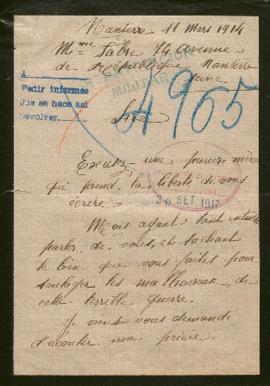 Nanterre 11 Mars 1914
Mme Fabre 74 avenue
de République Nanterre
Seine
A
Pedir informes
MILITAR
4965
devolver.
Sire
Excusez une pauvre mère
qui prend la liberté de vous
écrire
30 SET 1917
Mais ayant tant entendu
parler de vous, et sachant
le bien que vous faites pour
soulager les malheureux, de
cette terrible guerre.
Je viens vous demande
d'écouter mes prière